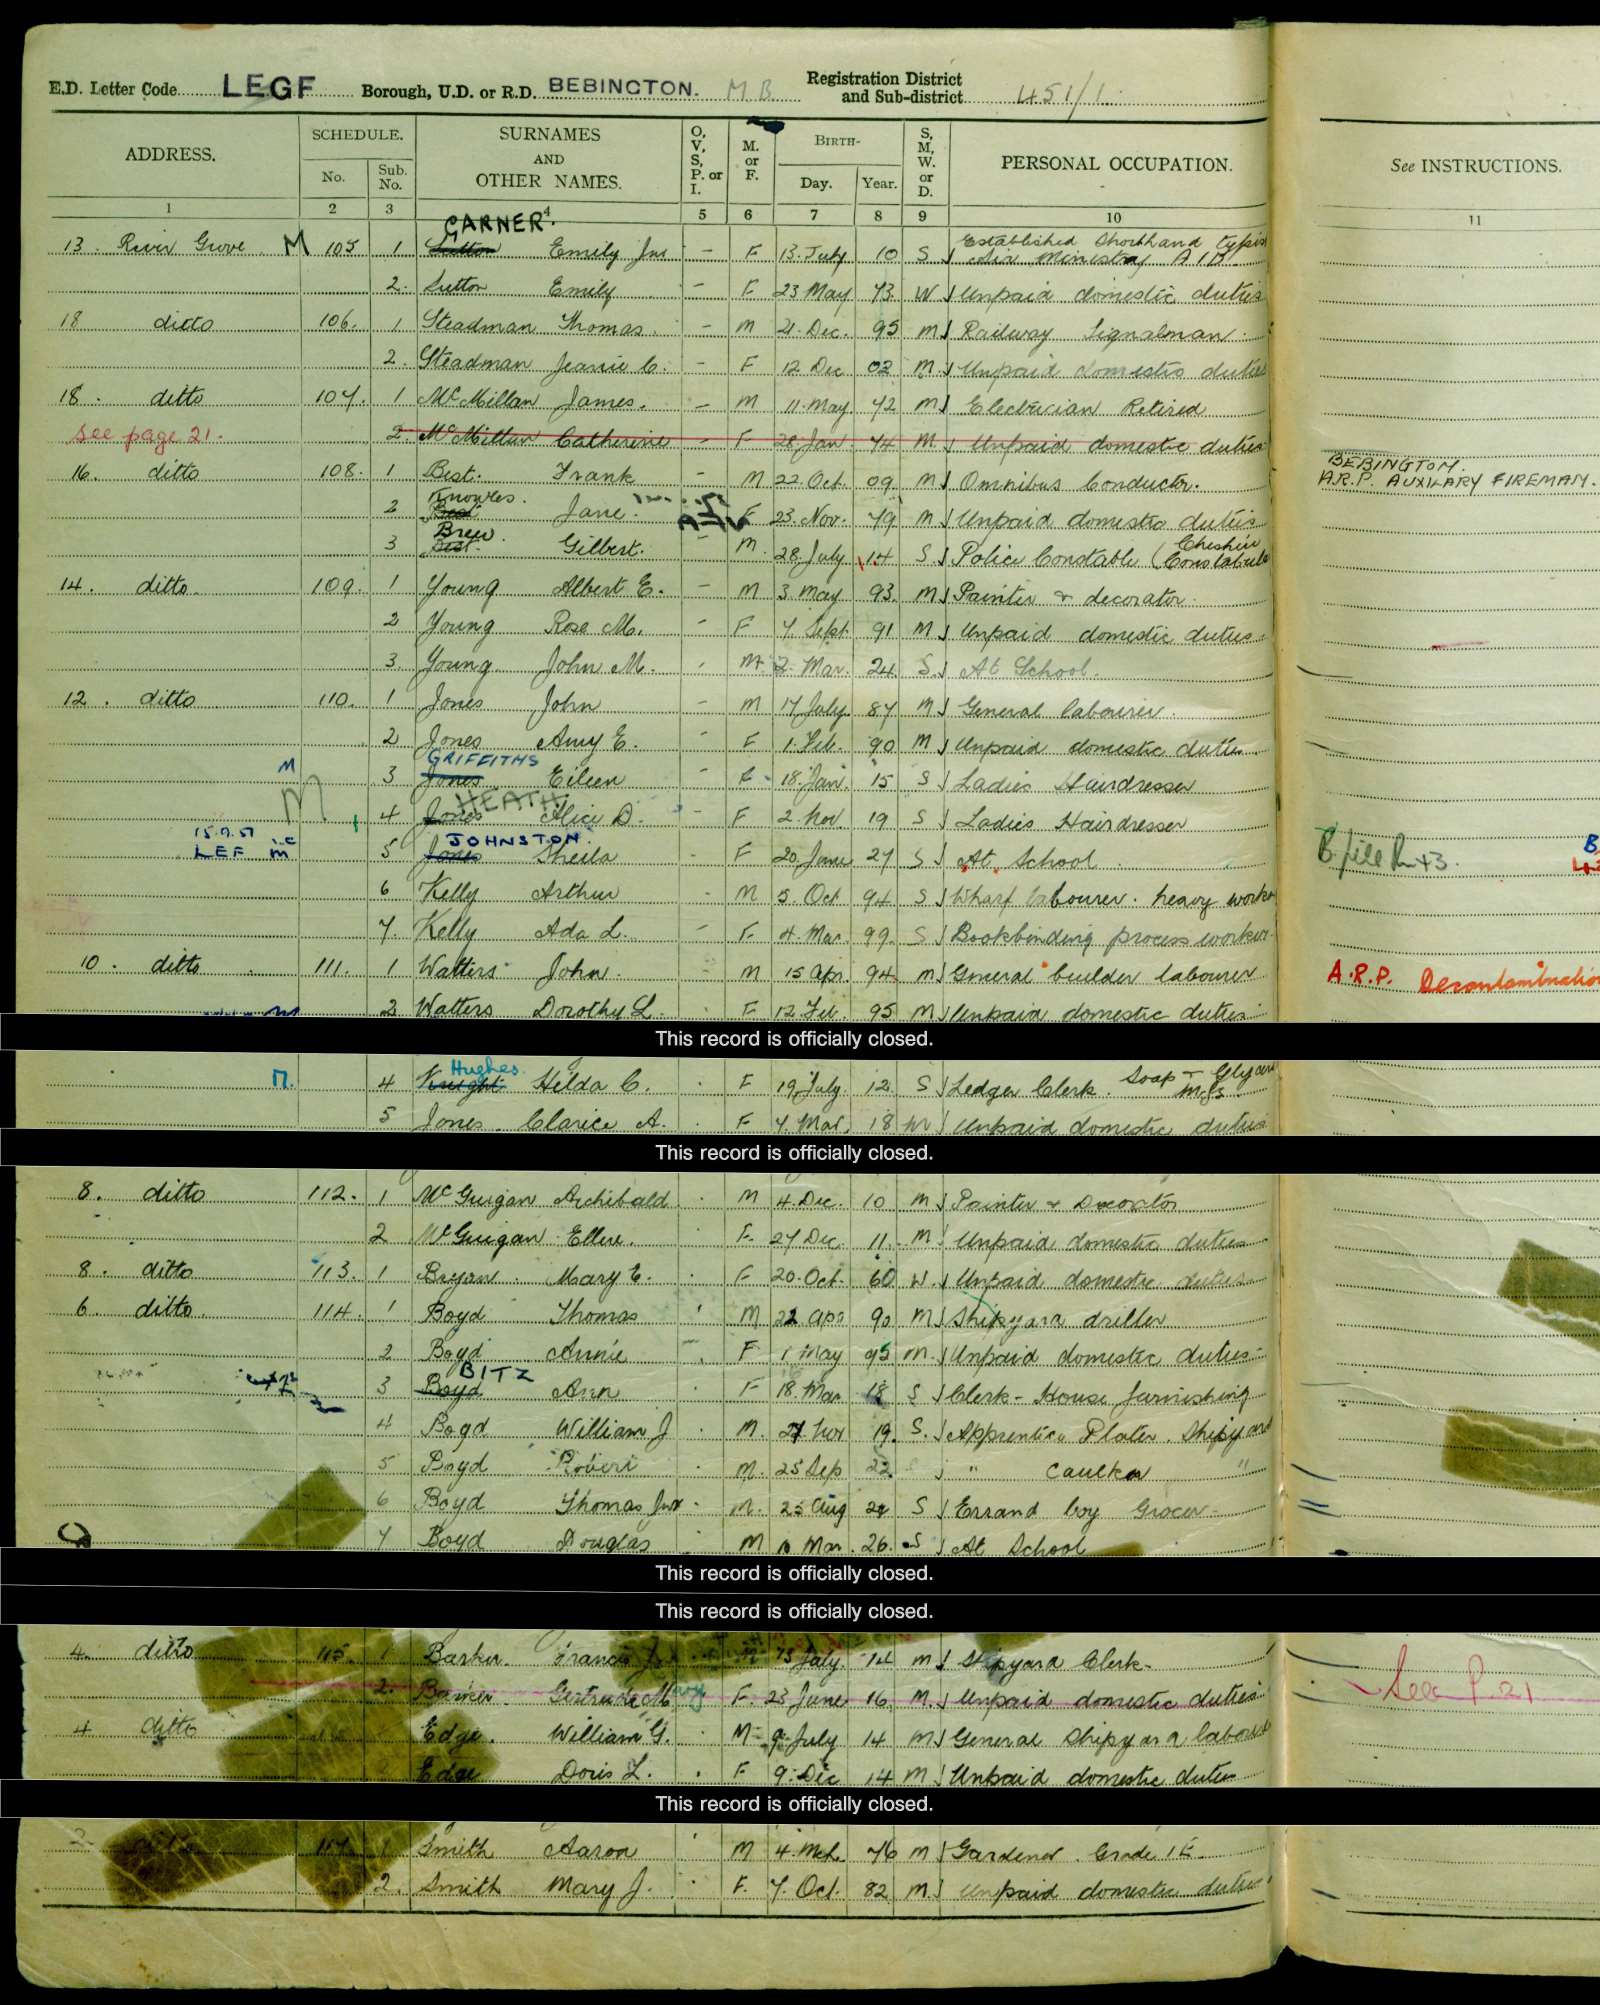 E.D. Letter Code LEGF Borough, U.D. or R.D. BEBINGTON. M.B. Registration District and Sub-district 451/1
ADDRESS. SCHEDULE. No. Sub. No. SURNAMES AND OTHER NAMES. O, V, S, P. or I. M. or F. BIRTH- Day. Year. S, M, W. or D. PERSONAL OCCUPATION. See INSTRUCTIONS.
1 2 3 4 5 6 7 8 9 10 11
GARNER.
13. River Grove M 105 1 Sutton Emily Jnr — F 13. July 10 S Established Shorthand Typist Air Ministry A.I.D.
2. Sutton Emily — F 23 May 73 W Unpaid domestic duties
18 ditto 106. 1 Steadman Thomas. — M 21. Dec. 95 M Railway Signalman.
2. Steadman Jeanie C. — F 12 Dec 02 M Unpaid domestic duties
18. ditto 107. 1 McMillan James. — M 11. May 72 M Electrician Retired
see page 21. 2. McMillan Catherine — F 28. Jan 74 M. Unpaid domestic duties
16. ditto 108. 1 Best. Frank — M 22. Oct. 09. M Omnibus Conductor. BEBINGTON. A.R.P. AUXILARY FIREMAN.
Knowles.
2 Best Jane. F 23. Nov. 79 M Unpaid domestic duties
Brew.
3 Best. Gilbert. — M. 28. July 14 S Police Constable (Cheshire Constabula
14. ditto. 109. 1 Young Albert E. — M 3. May 93. M Painter & decorator.
2 Young Rose M. — F 7. Sept. 91 M Unpaid domestic duties.
3 Young John M. - M 2. Mar. 24 S. At School.
12. ditto 110. 1 Jones John — M 17 July. 87 M General labourer.
2 Jones Amy E. - F 1. Feb. 90 M Unpaid domestic duties.
GRIFFITHS
M 3 Jones Eileen - F 18. Jan. 15 S Ladies Hairdresser
HEATH
M 4 Jones Alice D. F 2. Nov 19 S Ladies Hairdresser
JOHNSTON
15.9.51 LEF M 5 Jones Sheila - F 20. June 27 S At School
6 Kelly Arthur - M 5. Oct 94 S Wharf labourer. heavy worker
7. Kelly Ada L. - F 4. Mar. 99. S Bookbinding process worker
10. ditto 111. 1 Watters John. - M 15 Apr. 94. M General builder labourer A.R.P. Decontamination
2 Watters Dorothy L. - F 12 Feb. 95 M Unpaid domestic duties
This record is officially closed.
Hughes.
M. 4 Knight Hilda C. . F 19. July. 12. S Ledger Clerk. Soap
5 Jones. Clarice A. . F 7. Mar. 18 Unpaid domestic duties
This record is officially closed.
8. ditto 112. 1 McGuigan Archibald. . M 4. Dec. 10 M Painter & Decorator
2 McGuigan Ellen. . F. 27 Dec. 11. M Unpaid domestic duties
8. ditto 113. 1 Bryan. Mary E. . F 20. Oct. 60 W. Unpaid domestic duties.
6. ditto. 114. 1 Boyd Thomas M 22 Apr 90 M Shipyard driller
2 Boyd Annie F 1 May 95 M. Unpaid domestic duties-
BITZ
3 Boyd Ann . F 18. Mar 18 S Clerk - House furnishing
4 Boyd William J . M. 27 Nov 19. S. Apprentice Plater. Shipyard
5 Boyd Robert . M. 25 Sep 22 " Caulker "
6 Boyd Thomas Jnr - M. 25 Aug S Errand boy Grocer-
7 Boyd Douglas M Mar. 26. S At School
This record is officially closed.
This record is officially closed.
4. ditto 115. 1 Barker. Francis J. July. 14 M Shipyard Clerk-
2. Barker. Gertrude Mary F. 23 June 16 M. Unpaid domestic duties See P. 21
4 ditto Edge. William G. . M 9. July 14 M General Shipyard labourer
Edge Doris L. . F 9. Dec 14 M Unpaid domestic duties
This record is officially closed.
2 117 1 Smith Aaron M 4. Mch. 76 M Gardener. Grade
2. Smith Mary J. . F. 7. Oct. 82 M. Unpaid domestic duties